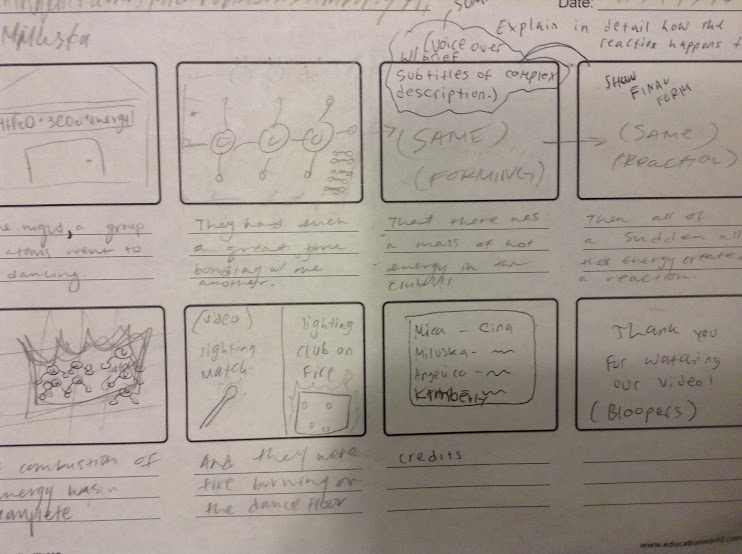 Date:
Miluska
Explain in detail how the
reaction happens
(voice over
w/ brief
subtitles of complex
description.)
energy!
(SAME)
(FORMING)
SHOW
FINAL
FORM
(SAME)
(Reaction)
one night, a group
atoms went to
dancing.
They had such
a great time
bonding w/ one
another.
That there was
a mass of hot
energy in the
club!!!
Then all of
a sudden all
this energy created
a reaction.
(video)
lighting
match
lighting
club on
Fire
Mica - Cina
Miluska -
Angelica -
Kimberly
Thank you
for watching
our video!
(Bloopers)
combustion of
energy was
complete
And they were
fire burning on
the dance floor
credits
www.educationworld.com